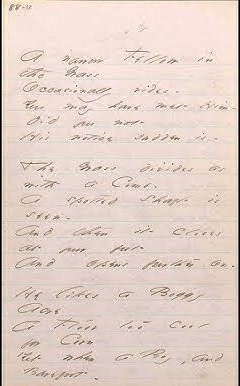 88-13
A narrow Fellow in
the Grass
Occasionally rides -
You may have met Him -
Did you not
His notice sudden is -
The Grass divides as
with a Comb -
A spotted Shaft is
seen -
And then it closes
at your feet
And opens further on -
He likes a Boggy
Acre
A Floor too cool
for Corn
But when a Boy, and
Barefoot -